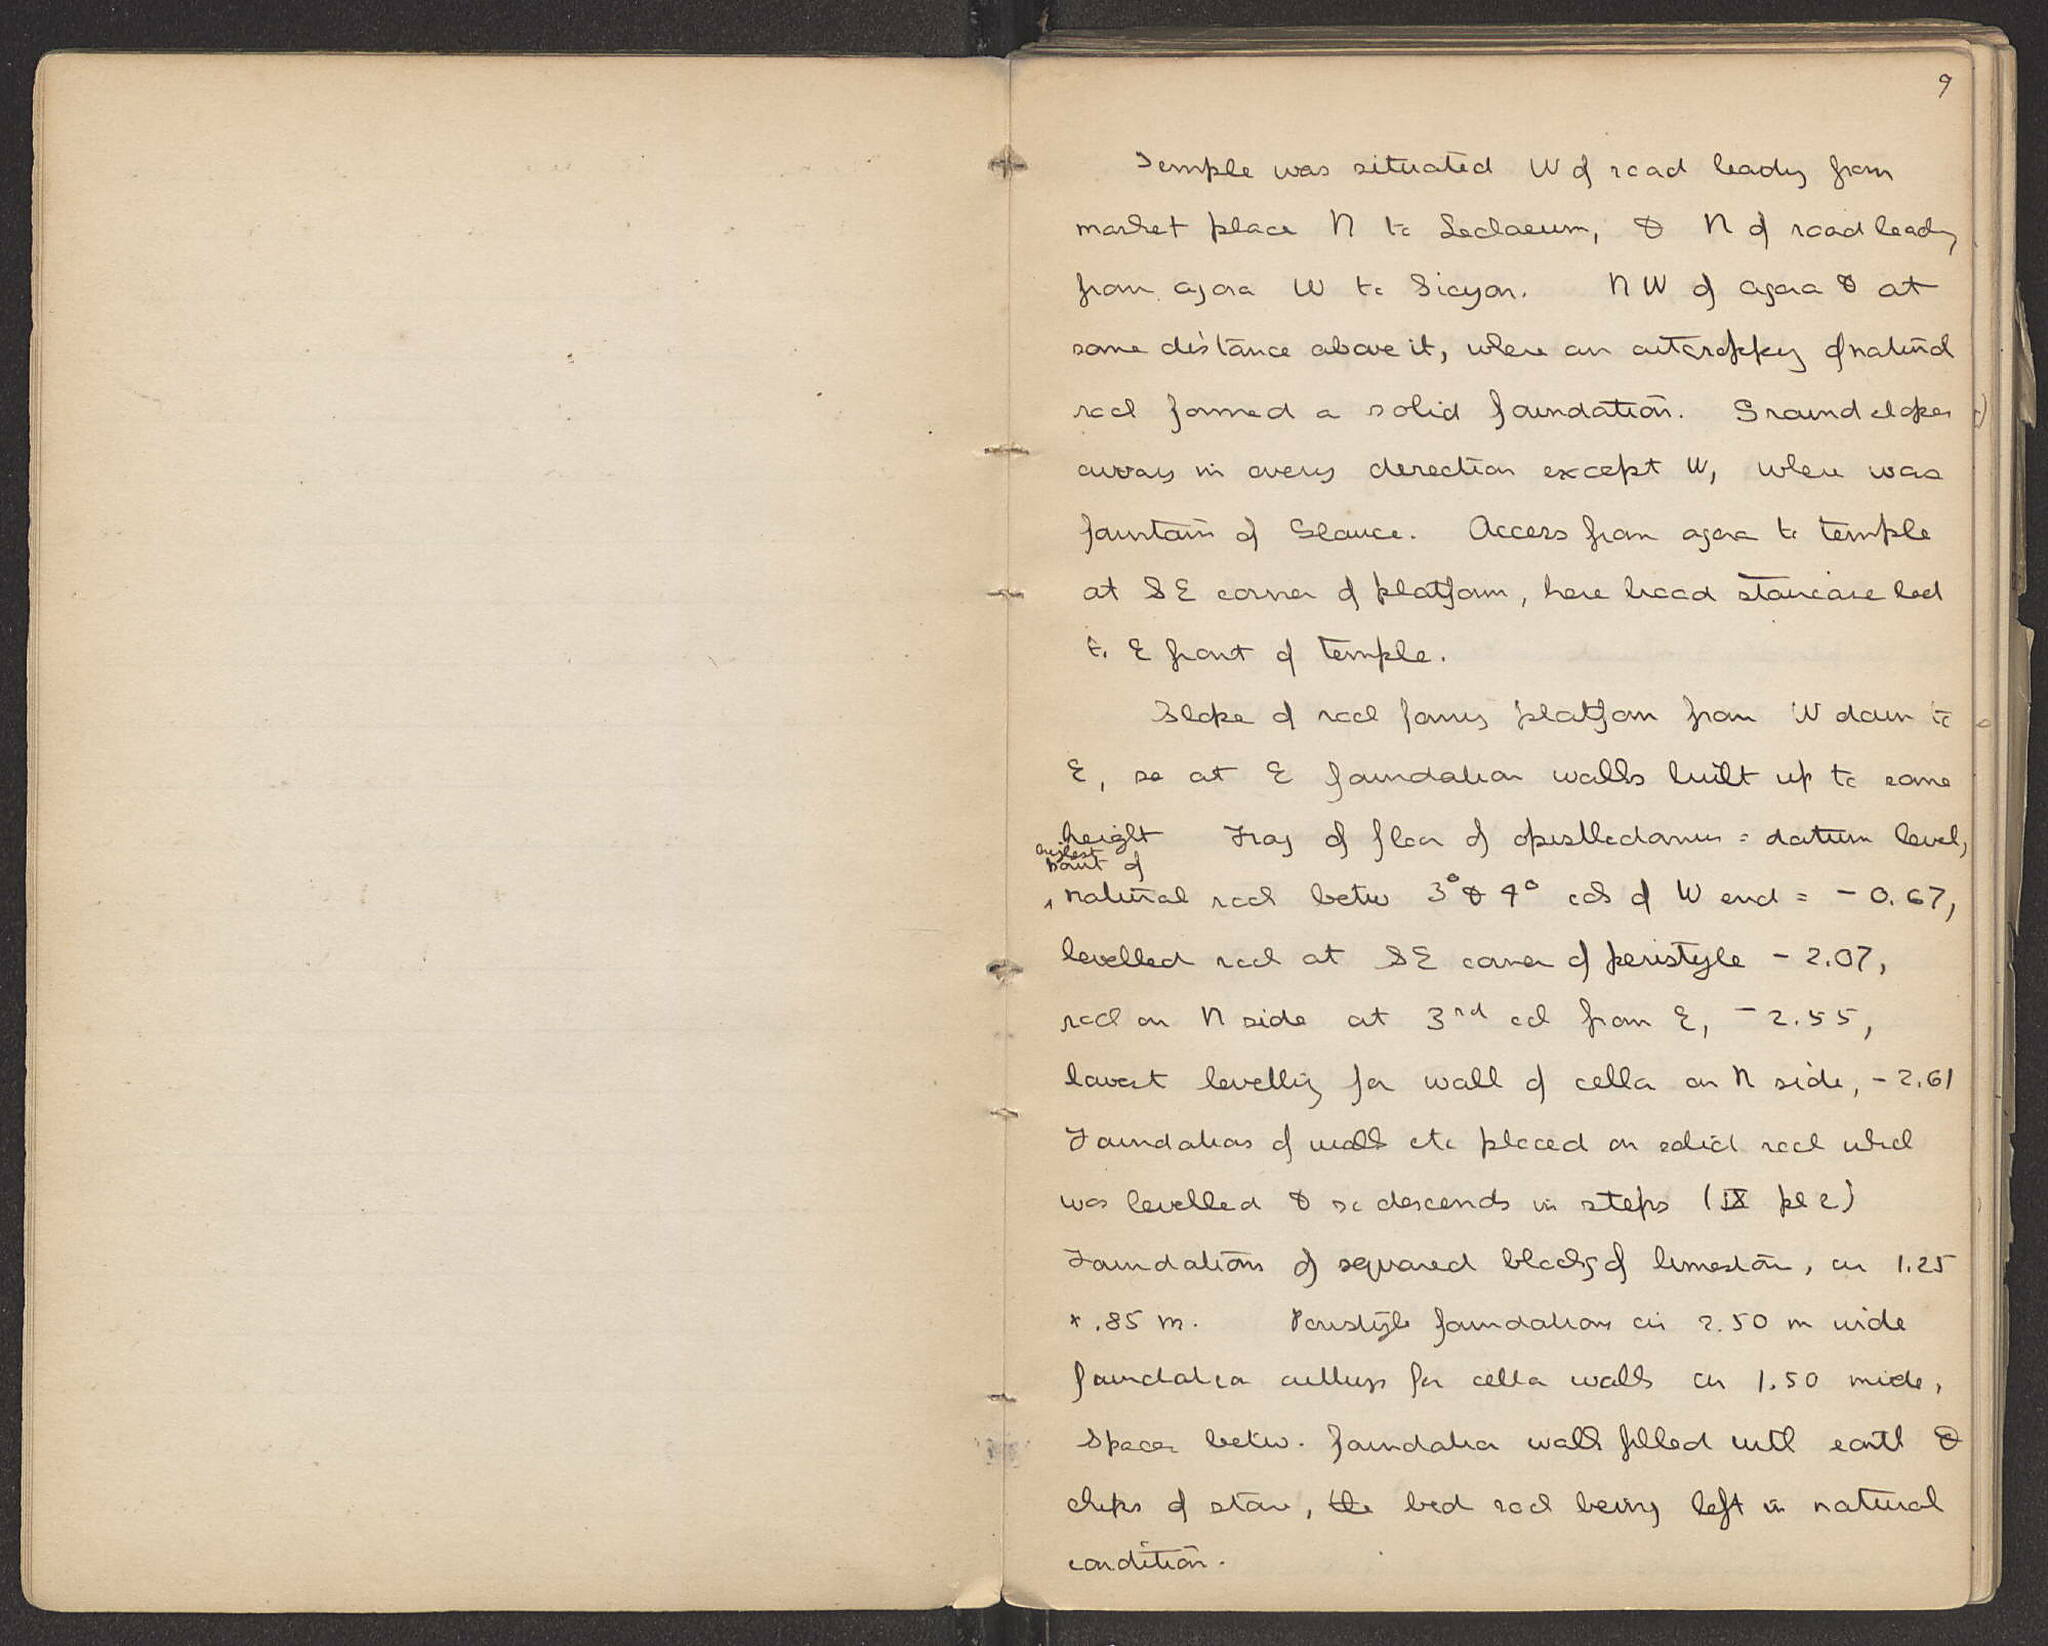 9
Temple was situated W of road leading from
market place N to Lechaeum, & N of road leading
from agora W to Sicyon. NW of agora & at
some distance above it, where an outcropping of natural
rock formed a solid foundation. Ground slopes
away in every direction except W, where was
fountain of Glauce. Access from agora to temple
at SE corner of platform, here broad staircase led
to E front of temple.
Slope of rock forms platform from W down to
E, so at E foundation walls built up to some
height Frag of floor of opisthodomus = datum level,
highest
point of
natural rock betw 3° & 4° col of W end = - 0.67,
levelled rock at SE corner of peristyle - 2.07,
rock on N side at 3rd col from E, - 2.55,
lowest levelling for wall of cella on N side, - 2.61
Foundations of walls etc placed on solid rock which
was levelled & so descends in steps (IX pl 2)
Foundations of squared blocks of limestone, ca 1.25
x .85 m. Peristyle foundations ca 2.50 m wide
foundation cuttings for cella walls ca 1.50 wide,
Spaces betw. foundation walls filled with earth &
chips of stone, the bed rock being left in natural
condition.